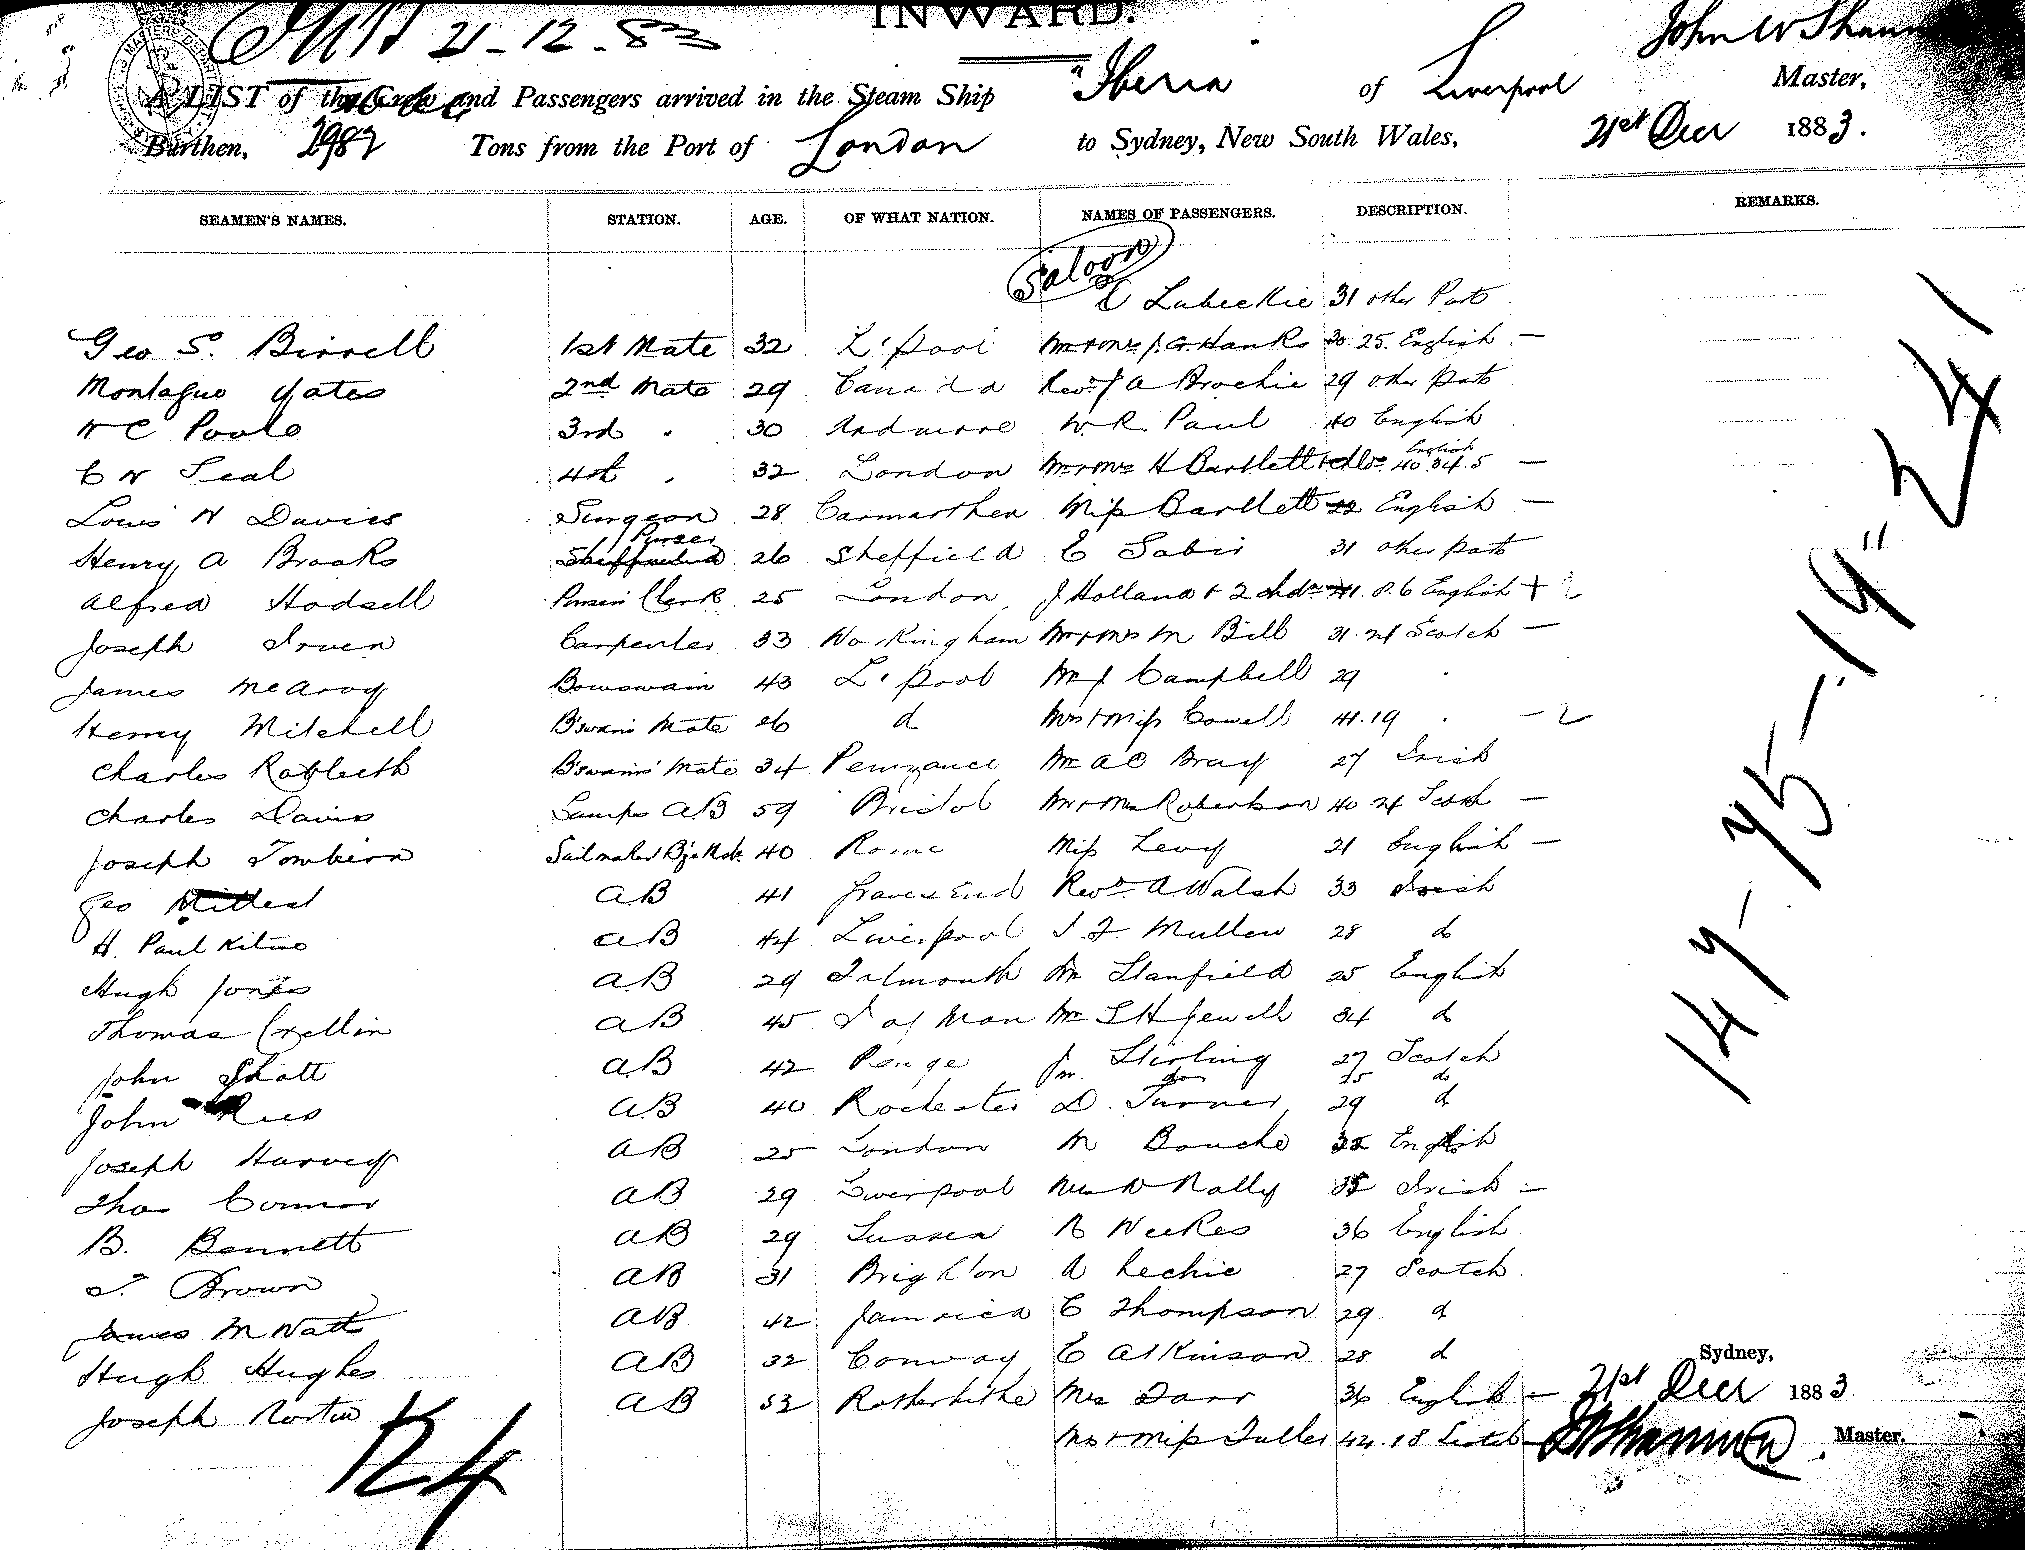 INWARD.
21-12-83
John W Shann
A LIST of the Crew and Passengers arrived in the Steam Ship "Iberia of Liverpool Master,
Burthen, 2982 Tons from the Port of London to Sydney, New South Wales, 21st Decr 1883.
SEAMEN'S NAMES. STATION. AGE. OF WHAT NATION. NAMES OF PASSENGERS. DESCRIPTION. REMARKS.
Saloon
Lubeckie 31 other Parts
Geo S. Birrell 1st Mate 32 L'pool Mr & Mrs J. G. Hanks 30. 25. English —
Montague Yates 2nd Mate 29 Canada Revd J A Brochie 29 other parts
W C Poole 3rd " 30 Ardmore W. R. Paul 40 English
C W Seal 4th " 32 London Mr & Mrs H Bartlett & chd 40. 34. 5 English —
Louis H Davies Surgeon 28 Carmarthen Miss Bartlett 22 English —
Henry A Brooks Purser 26 Sheffield E Sabir 31 other parts
Alfred Hodsell Purser's Clerk 25 London J Holland & 2 chdn 41. 8. 6 English + 2
Joseph Irven Carpenter 33 Workingham Mr & Mrs M Bill 31. 24 Scotch —
James McAvoy Bowswain 43 L'pool Mr J Campbell 29 "
Henry Mitchell B'swain's Mate 26 d Mrs & Miss Cowell 41. 19 " — 2
Charles B'swains' Mate 34 Penzance Mr A C Bray 27 Irish
Charles Davis Lamps AB 59 Bristol Mr & Mrs Robertson 40 24 Scotch —
Joseph Tombern Sailmaker 40 Rome Miss Levy 21 English —
Geo AB 41 Graves End Revd A Walsh 33 Irish
H. Paul Kitno AB 44 Liverpool J F Mullen 28 d
Hugh Jones AB 29 Falmouth Mr Stanfield 25 English
Thomas Crellin AB 45 I of Man Mr S H Jewell 34 d
John Shott AB 42 Penge Jn Stirling 27 Scotch
Jm. do 25 d
John Rees AB 40 Rochester D. Turner 29 d
Joseph Harvey AB 25 London M Bouche 32 English
Thos Connor AB 29 Liverpool Mrs W Nally 35 Irish —
B. Bennett AB 29 Sussex R Weekes 36 English
T. Brown AB 31 Brighton A Lechie 27 Scotch
James M Watts AB 42 Jamaica C Thompson 29 d
Hugh Hughes AB 32 Conway E Atkinson 28 d
Joseph Norton AB 52 Rotherhithe Mrs Farr 36 English —
Mrs & Miss Fuller 44. 18 Scotch —
124
147-75-19" 241
Sydney,
21st Decr 1883
J W Shannon Master.